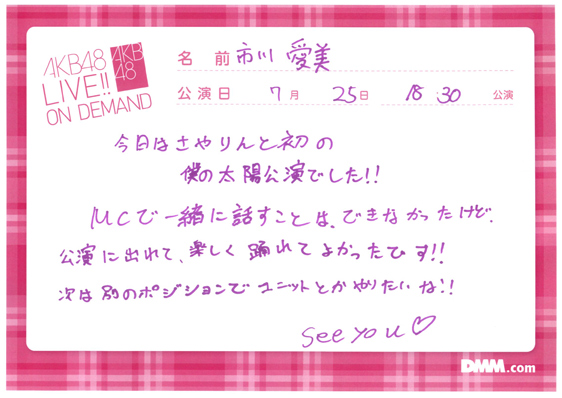 AKB48
LIVE!!
ON DEMAND
AKB
48
名 前 市川 愛美
公演日 7月 25日 18:30 公演
今日はさやりんと初の
僕の太陽公演でした!!
MCで一緒に話すことは、できなかったけど、
公演に出れて、楽しく踊れてよかったです!!
次は別のポジションでユニットとかやりたいな!!
see you♡
DMM.com